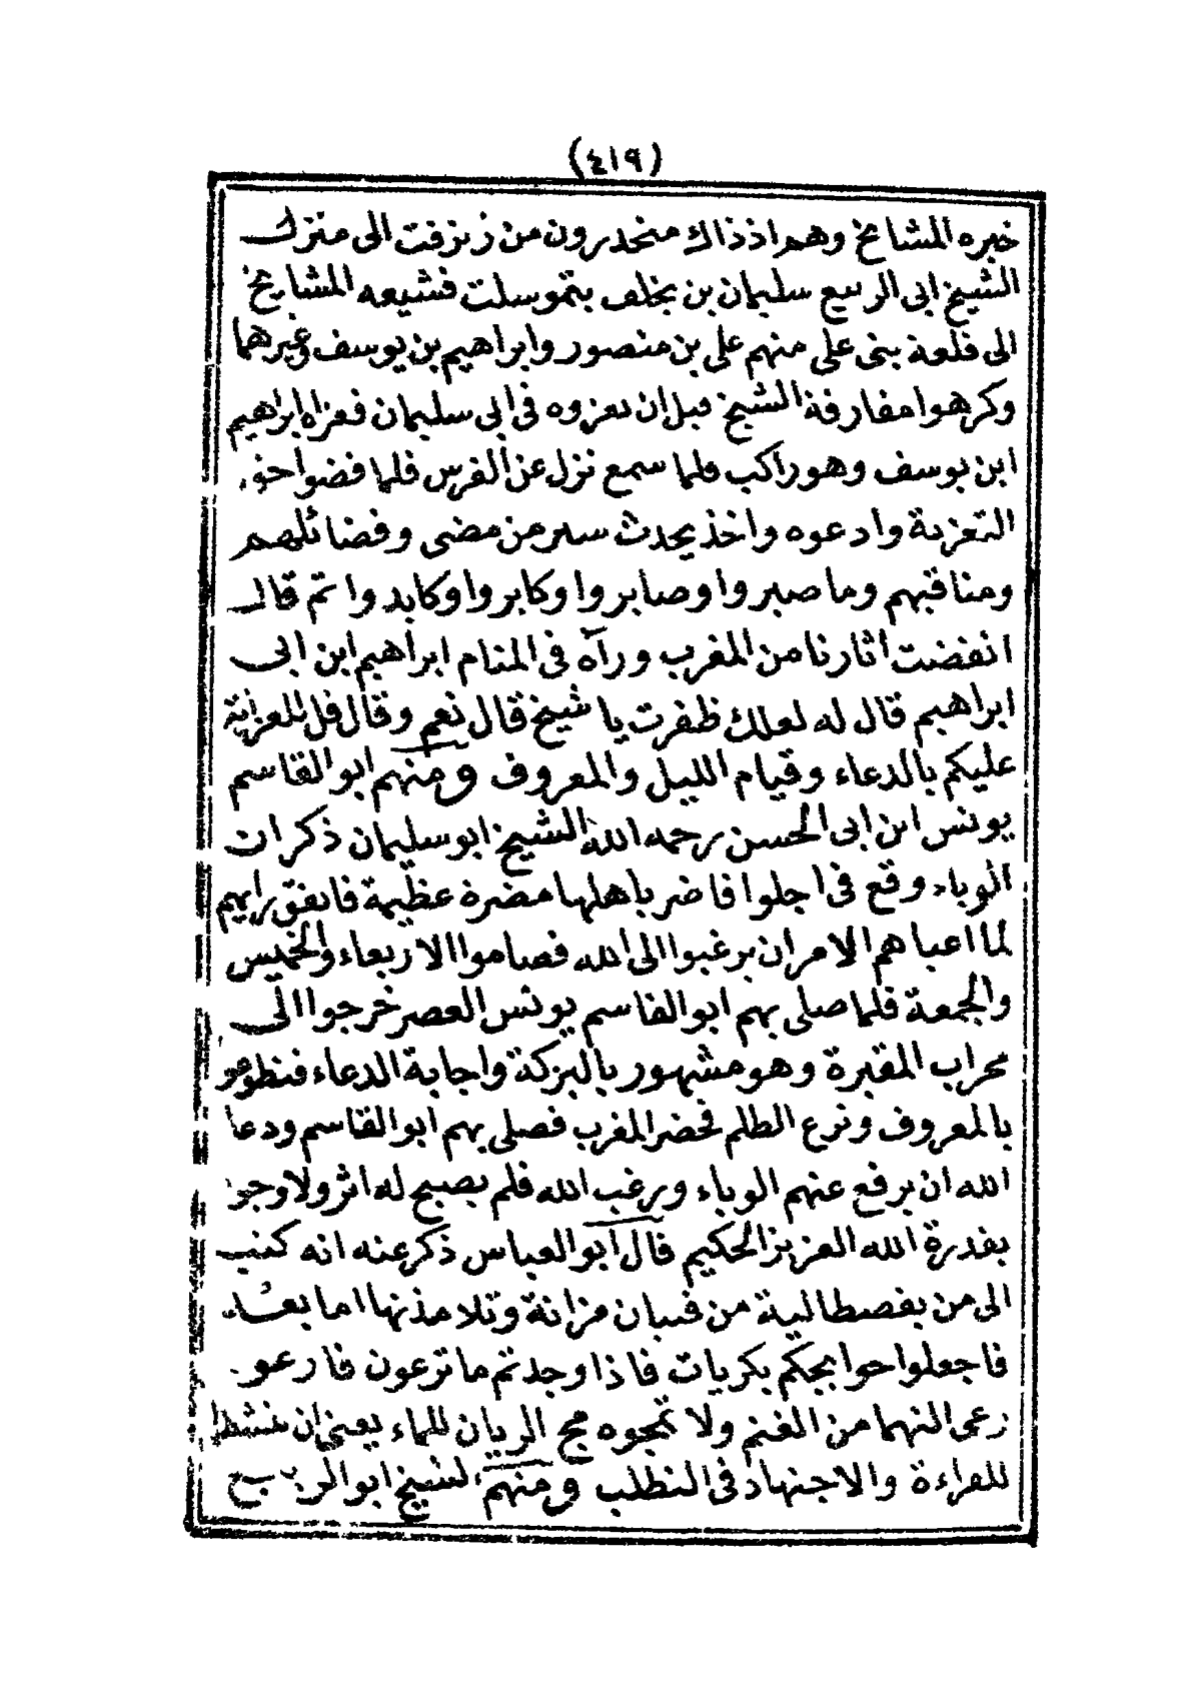 (٤١٩)
خبره المشايخ وهم اذ ذاك منحدرون من زنزفت الى منزل
الشيخ ابى الربيع سليمان بن يخلف بتموسلت فشيعه المشايخ
الى قلعة بنى على منهم على بن منصور وابراهيم بن يوسف وغيرهما
وكرهوا مفارقة الشيخ قبل ان يعزوه فى ابى سليمان فعزاه ابراهيم
ابن يوسف وهو راكب فلما سمع نزل عن الفرس فلما قضوا حق
التعزية وادعوه واخذ يحدث سير من مضى وفضائلهم
ومناقبهم وما صبروا وصابروا وكابروا وكابدوا ثم قال
انقضت اثارنا من المغرب ورآه فى المنام ابراهيم ابن ابى
ابراهيم قال له لعلك ظفرت يا شيخ قال نعم وقال قل للعزابة
عليكم بالدعاء وقيام الليل والمعروف ومنهم ابو القاسم
يونس ابن ابى الحسن رحمه الله الشيخ ابو سليمان ذكر ان
الوباء وقع فى اجلوا فاضر باهلها مضرة عظيمة فاتفق رايهم
لما اعياهم الامر ان يرغبوا الى الله فصاموا الاربعاء والخميس
والجمعة فلما صلى بهم ابو القاسم يونس العصر خرجوا الى
محراب المقبرة وهو مشهور بالبركة واجابة الدعاء فتطوعو
بالمعروف ونزع الظلم فحضر المغرب فصلى بهم ابو القاسم ودعا
الله ان يرفع عنهم الوباء ورغب الله فلم يصبح له اثر ولا وجو
بقدرة الله العزيز الحكيم قال ابو العباس ذكر عنه انه كتب
الى من بقصطالية من فتيان مزاتة وتلامذتها اما بعد
فاجعلوا حوايجكم بكريات فاذا وجدتم ما ترعون فارعو
رعى النهما من الغنم ولا تمجوه مج الريان للماء يعنى ان تنشطوا
للقراءة والاجتهاد فى التطلب ومنهم الشيخ ابو الربيع